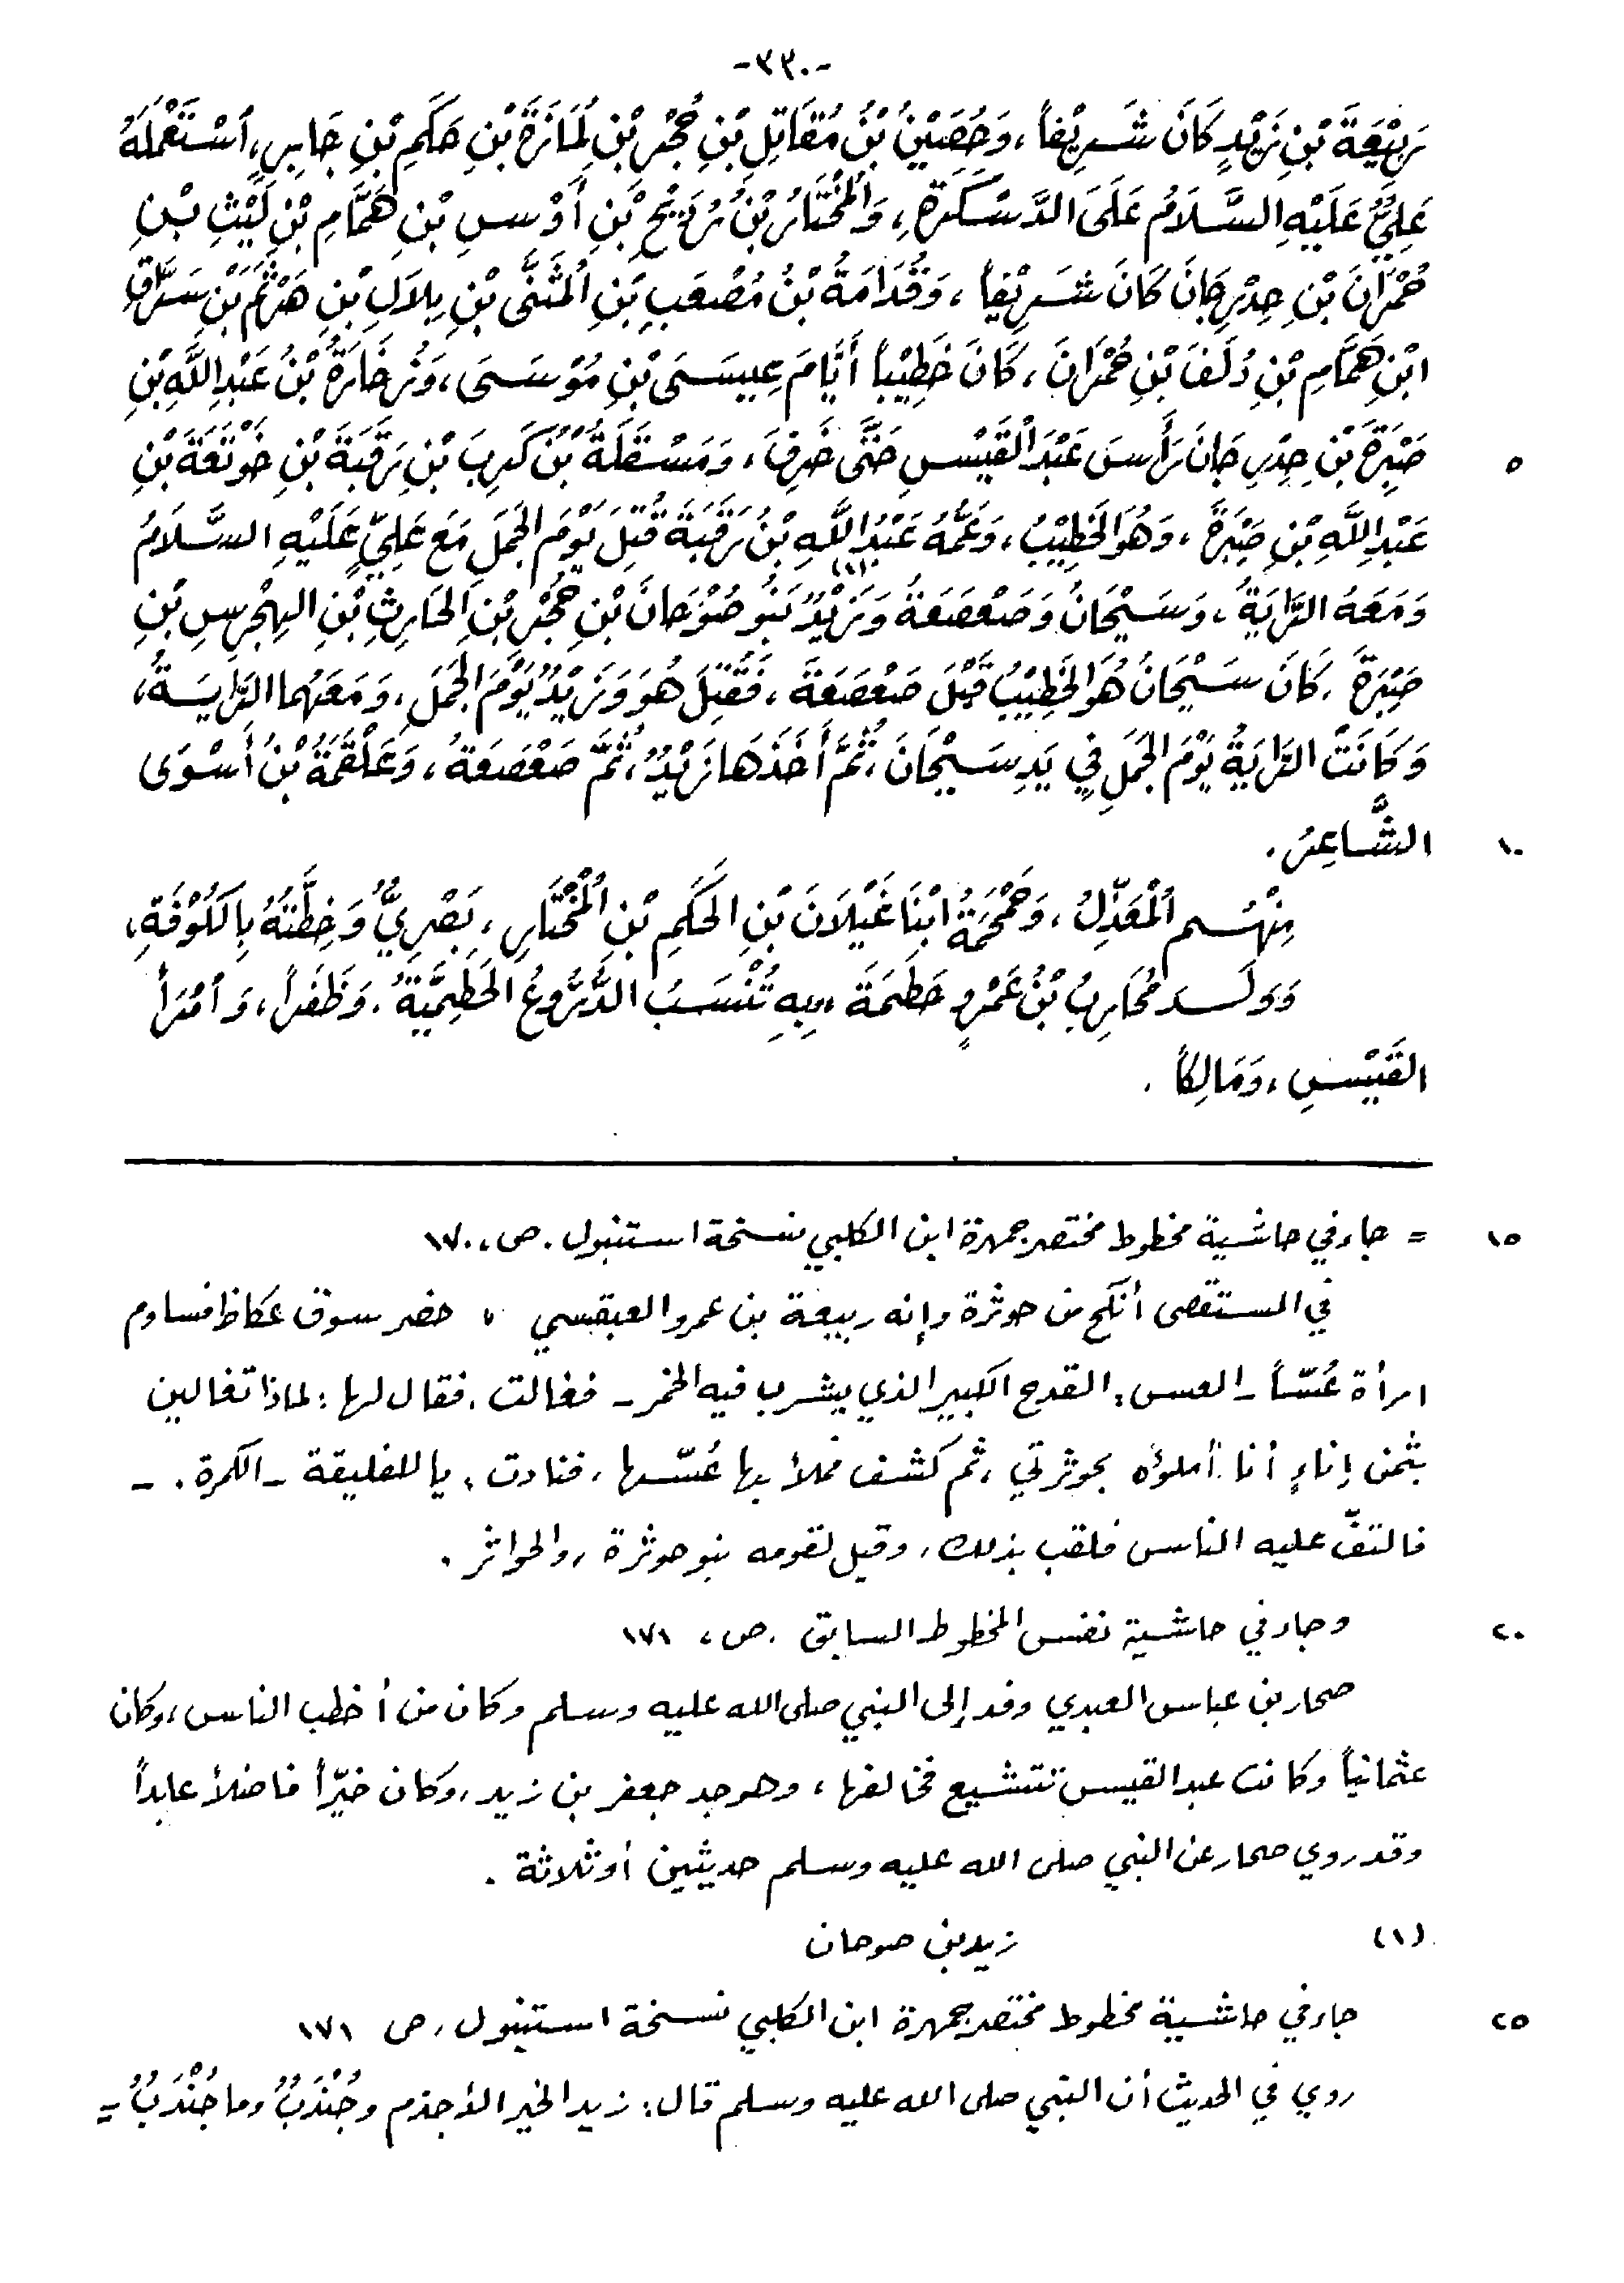 -٣٣٠-
رَبِيْعَةَ بْنِ زَيْدٍ كَانَ شَرِيْفاً، وَحُصَيْنُ بْنُ مُقَاتِلِ بْنِ حُجْرِ بْنِ لُمَازَةَ بْنِ حَكَمِ بْنِ جَابِرٍ، اُسْتَعْمَلَهُ
عَلِيٌّ عَلَيْهِ السَّلَامُ عَلَى الدَّسْكَرَةِ، وَالْمُخْتَارُ بْنُ رُدَيْحِ بْنِ أَوْسِ بْنِ هَمَّامِ بْنِ لَيْثِ بْنِ
حُمْرَانَ بْنِ حِدْرِجَانَ كَانَ شَرِيْفاً، وَقُدَامَةُ بْنُ مُصْعَبِ بْنِ الْمُثَنَّى بْنِ بِلَالِ بْنِ هَرْثَمَ بْنِ سَرَّاقِ
ابْنِ هَمَّامِ بْنِ دُلَفَ بْنِ حُمْرَانَ، كَانَ خَطِيْباً أَيَّامَ عِيسَى بْنِ مُوْسَى، وَزُخَارَةُ بْنُ عَبْدِ اللَّهِ بْنِ
٥ صَبِرَةَ بْنِ حِدْرِجَانَ رَأَسَ عَبْدَ الْقَيْسِ حَتَّى خَرِفَ، وَمَسْقَلَةُ بْنُ كَرِبَ بْنِ رَقَبَةَ بْنِ خَوْتَعَةَ بْنِ
عَبْدِ اللَّهِ بْنِ صَبِرَةَ، وَهُوَ الْخَطِيْبُ، وَعَمُّهُ عَبْدُ اللَّهِ بْنُ رَقَبَةَ قُتِلَ يَوْمَ الْجَمَلِ مَعَ عَلِيٍّ عَلَيْهِ السَّلَامُ
وَمَعَهُ الرَّايَةُ، وَسَيْحَانُ وَصَعْصَعَةُ وَزَيْدٌ(١) بَنُو صُوْحَانَ بْنِ حُجْرِ بْنِ الْحَارِثِ بْنِ الهِجْرِسِ بْنِ
صَبِرَةَ، كَانَ سَيْحَانُ هُوَ الْخَطِيْبُ قَبْلَ صَعْصَعَةَ، فَقُتِلَ هُوَ وَزَيْدٌ يَوْمَ الْجَمَلِ، وَمَعَهُمَا الرَّايَةُ،
وَكَانَتْ الرَّايَةُ يَوْمَ الْجَمَلِ فِي يَدِ سَيْحَانَ، ثُمَّ أَخَذَهَا زَيْدٌ، ثُمَّ صَعْصَعَةُ، وَعَلْقَمَةُ بْنُ أَسْوَى
١٠ الشَّاعِرُ.
مِنْهُم الْمُعَذِّلُ، وَحَمْحَمَةُ ابْنَا غَيْلَانَ بْنِ الْحَكَمِ بْنِ الْمُخْتَارِ، بَصْرِيٌّ وَخِطَّتُهُ بِالْكُوْفَةِ،
وَوَلَد مُحَارِبُ بْنُ عَمْرٍو حَطَمَةَ، بِهِ تُنْسَبُ الدُّرُوعُ الْحَطَمِيَّةُ. وَظَفَراً، وَامْرَأَ
القَيْسِ، وَمَالِكاً.
١٥ = جاء في حاشية مخطوط مختصر جمهرة ابن الكلبي نسخة استنبول. ص، ١٧٠
في المستقصى أنكح من حوثرة وإنه ربيعة بن عمرو العبقسي، حضر سوق عكاظ فساوم
امرأة عُسّاً - العس: القدح الكبير الذي يشرب فيه الخمر - فغالت. فقال لها: لماذا تغالين
بثمن إناءٍ أنا أملؤه بحوثرتي، ثم كشف فملأ بها عُسّها، فنادت: يا للفليقة - الكمرة. -
فالتفّ عليه الناس فلقب بذلك، وقيل لقومه بنو حوثرة، والحواثر.
٢٠ وجاء في حاشية نفس المخطوط السابق. ص، ١٧١
صحار بن عباس العبدي وفد إلى النبي صلى الله عليه وسلم وكان من أخطب الناس، وكان
عثمانياً وكانت عبد القيس تتشيع فخالفها، وهو جد جعفر بن زيد، وكان خيّراً فاضلاً عابداً
وقد روي صحار عن النبي صلى الله عليه وسلم حديثين أو ثلاثة.
(١) زيد بن صوحان
٢٥ جاء في حاشية مخطوط مختصر جمهرة ابن الكلبي نسخة استنبول، ص ١٧١
روي في الحديث أن النبي صلى الله عليه وسلم قال: زيد الخير الأجذم وجُنْدَبٌ وما جُنْدَبٌ =